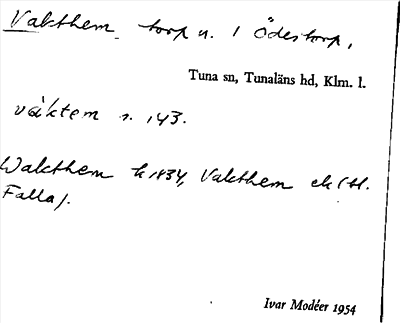 Vakthem, torp u. 1 Ödestorp,
Tuna sn, Tunaläns hd, Klm. l.
vàktem s. 143.
Wakthem k 1834, Vakthem ek (tl.
Falla).
Ivar Modéer 1954